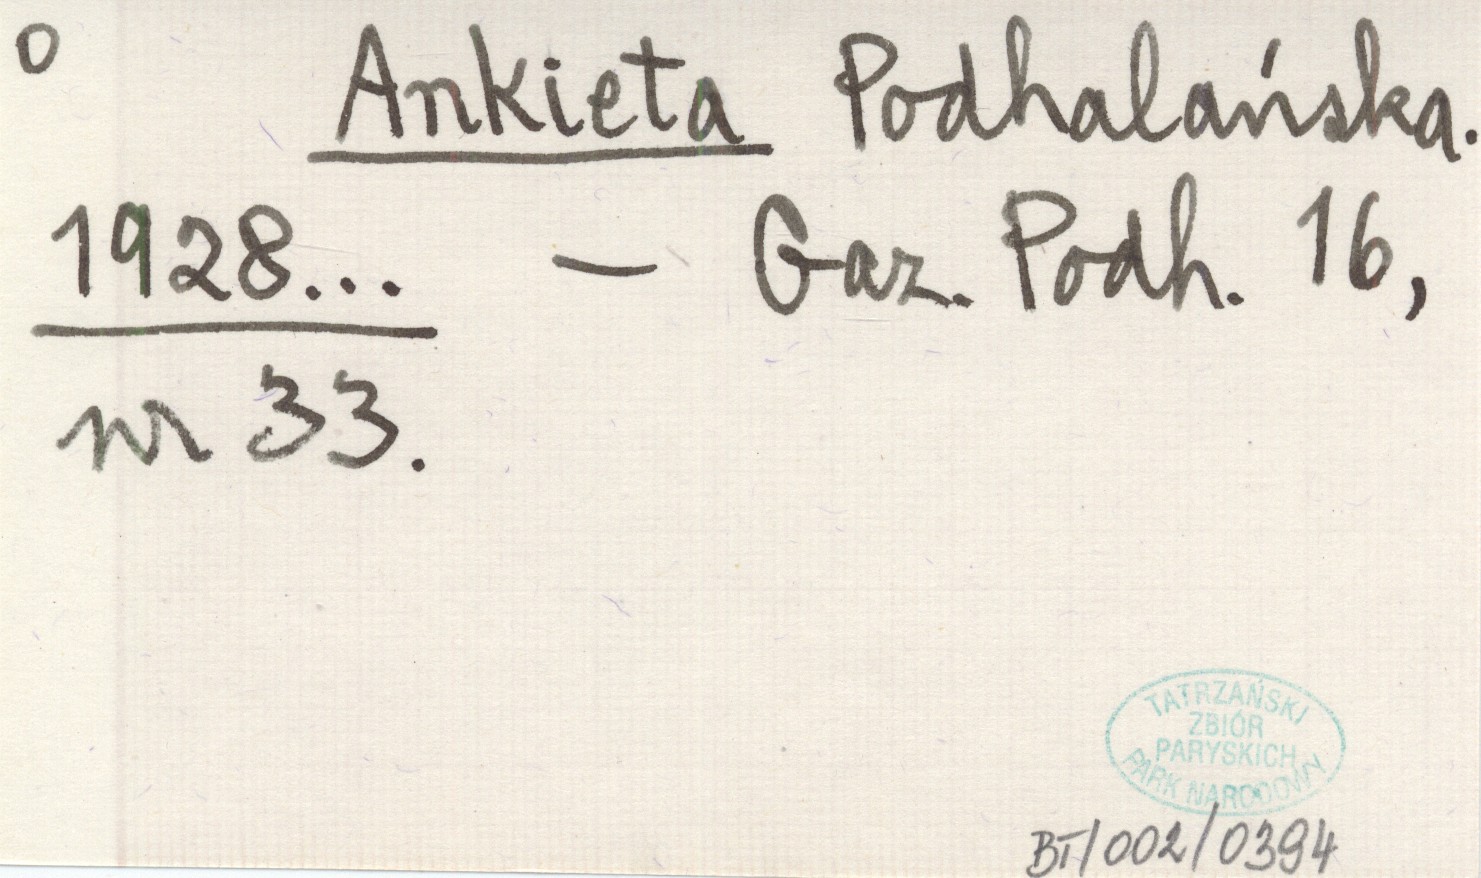 o
Ankieta Podhalańska.
1928... — Gaz. Podh. 16,
nr 33.
TATRZAŃSKI
ZBIÓR
PARYSKICH
PARK NARODOWY
BT/002/0394